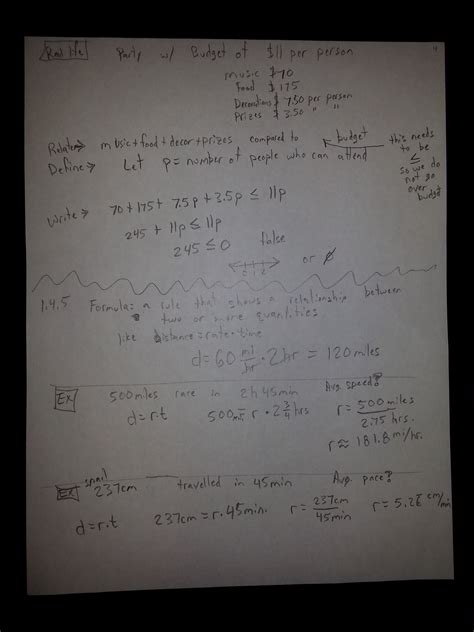 Real life Party w/ Budget of $11 per person 4
music $70
Food $175
Decorations $7.50 per person
Prizes $3.50 " "
Relate → music + food + decor + prizes compared to budget this needs to be ≤ so we do not go over budget
Define → Let p = number of people who can attend
Write → 70 + 175 + 7.5p + 3.5p ≤ 11p
245 + 11p ≤ 11p
245 ≤ 0 false
or ∅
1.4.5 Formula = a rule that shows a relationship between
two or more quantities
like distance = rate · time
d = 60 mi/hr · 2hr = 120 miles
Ex 500 miles race in 2h 45min Avg. speed?
d = r.t 500 mi = r · 2 3/4 hrs r = 500 miles / 2.75 hrs.
r ≈ 181.8 mi/hr.
Ex snail 237cm travelled in 45min Avg. pace?
d = r.t 237cm = r. 45min. r = 237cm / 45min r = 5.26̅ cm/min